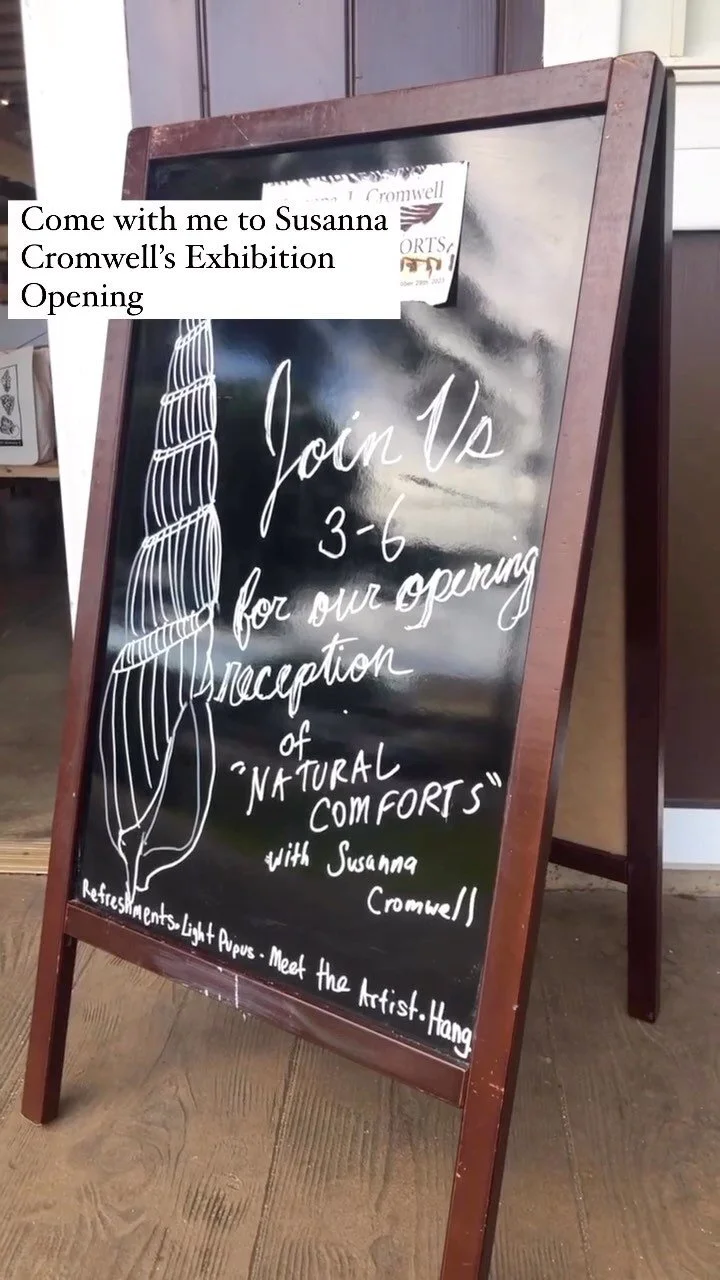 Cromwell
Come with me to Susanna
Cromwell's Exhibition
Opening
ORTS
Join Us
3-6
for our opening
reception
of
"NATURAL
COMFORTS"
with Susanna
Cromwell
Refreshments • Light Pupus • Meet the Artist • Hang